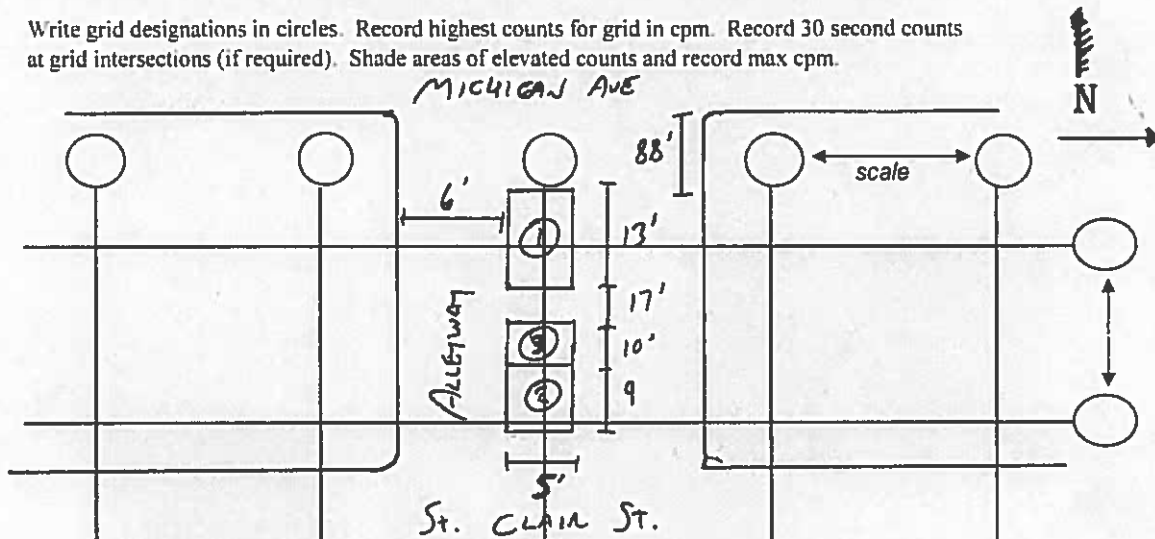 Write grid designations in circles. Record highest counts for grid in cpm. Record 30 second counts
at grid intersections (if required). Shade areas of elevated counts and record max cpm.
MICHIGAN AVE
N
88'
scale
6'
1
13'
17'
ALLEYWAY
3
10'
2
9
5'
St. CLAIR St.